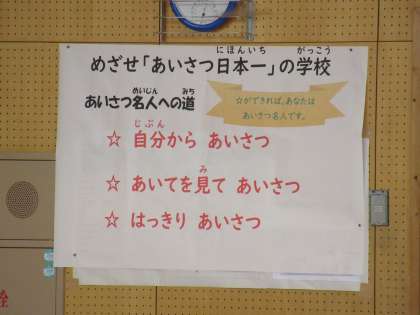 めざせ「あいさつ日本一」の学校
にほんいち
がっこう
あいさつ名人への道
めいじん
みち
☆ができれば、あなたは
あいさつ名人です。
☆ 自分から あいさつ
じぶん
☆ あいてを見て あいさつ
み
☆ はっきり あいさつ